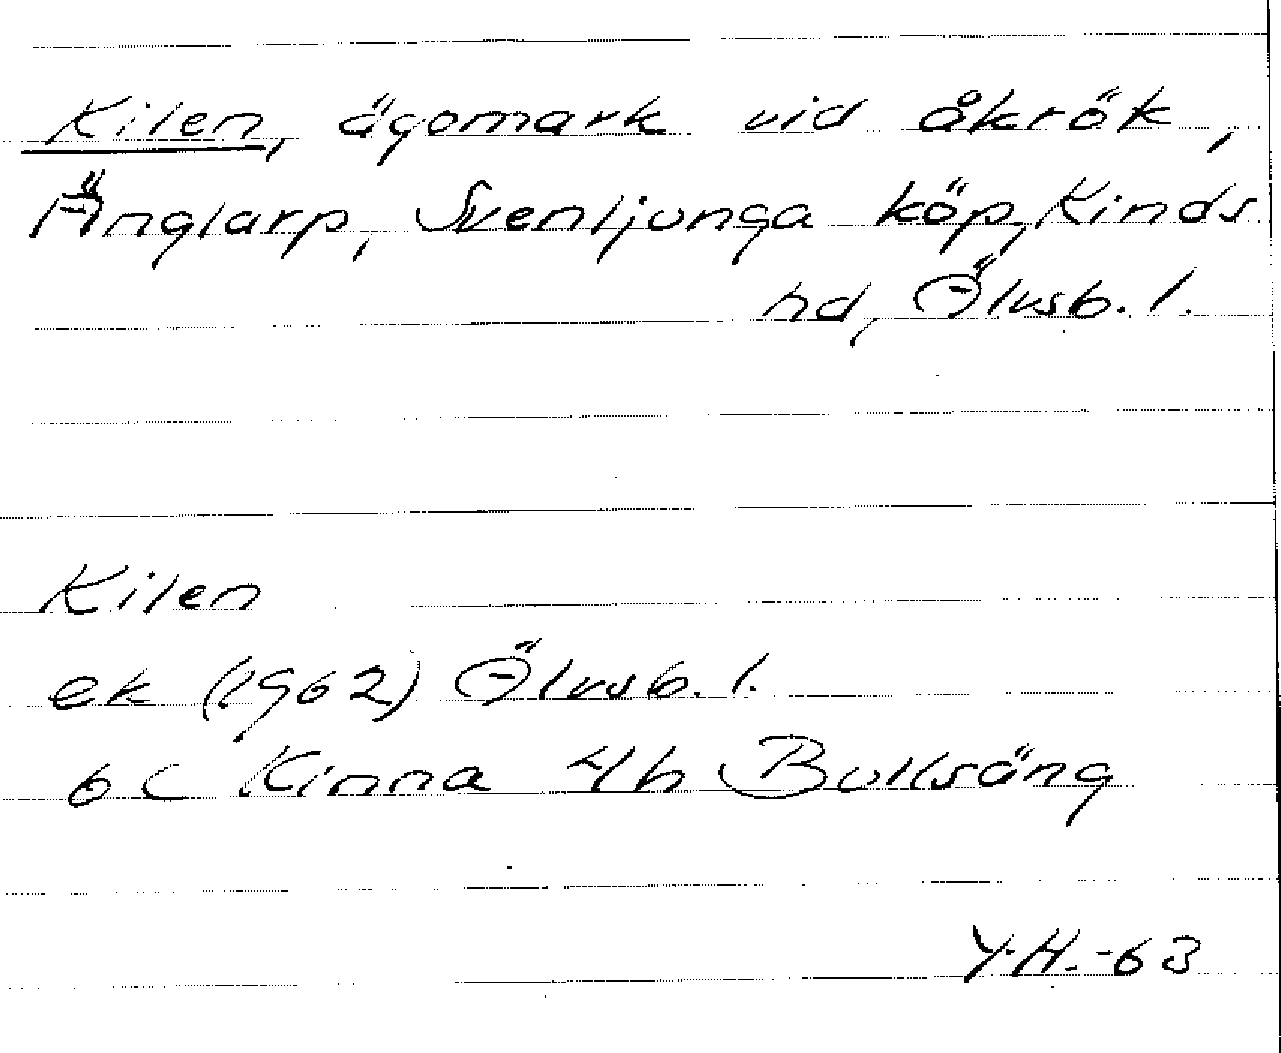 Kilen, ägomark vid åkrök,
Änglarp, Svenljunga köp, Kinds
hd, Älvsb. l.
Kilen
ek (1962) Älvsb. l.
6C Kinna 4h Bullsäng
Y.H.-63